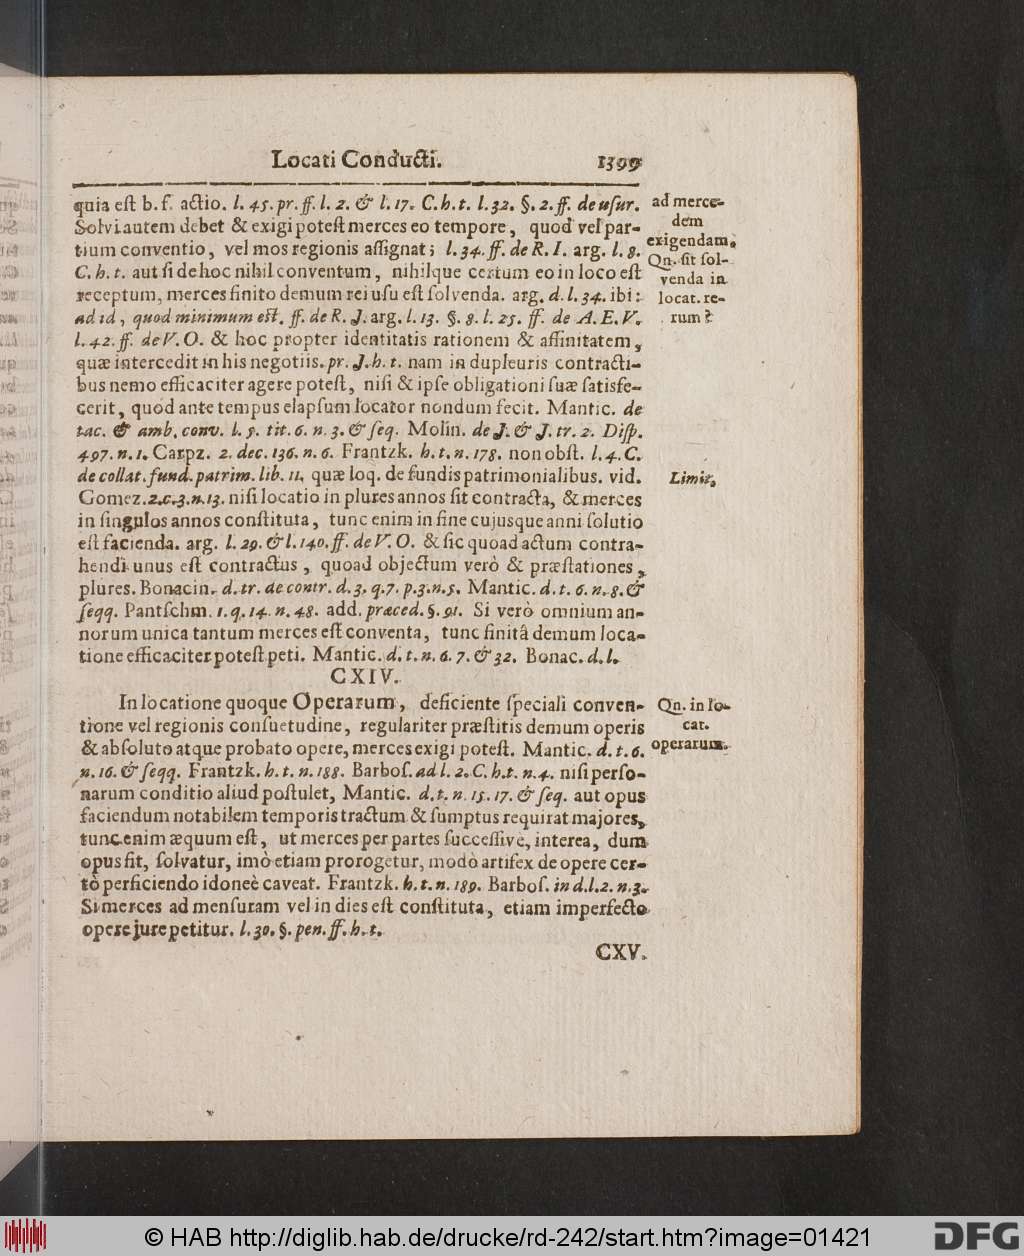 Locati Conducti. 1399
quia eſt b. f. actio. l. 45. pr. ff. l. 2. & l. 17. C. h. t. l. 32. §. 2. ff. de uſur.
Solvi autem debet & exigi poteſt merces eo tempore, quod vel par-
tium conventio, vel mos regionis aſſignat; l. 34. ff. de R. I. arg. l. 8.
C. h. t. aut ſi de hoc nihil conventum, nihilque certum eo in loco eſt
receptum, merces finito demum rei uſu eſt ſolvenda. arg. d. l. 34. ibi:
ad id, quod minimum eſt. ff. de R. J. arg. l. 13. §. 8. l. 25. ff. de A. E. V.
l. 42. ff. de V. O. & hoc propter identitatis rationem & affinitatem,
quæ intercedit in his negotiis. pr. J. h. t. nam in dupleuris contracti-
bus nemo efficaciter agere poteſt, niſi & ipſe obligationi ſuæ ſatisfe-
cerit, quod ante tempus elapſum locator nondum fecit. Mantic. de
tac. & amb. conv. l. 5. tit. 6. n. 3. & ſeq. Molin. de J. & J. tr. 2. Diſp.
497. n. 1. Carpz. 2. dec. 136. n. 6. Frantzk. h. t. n. 178. non obſt. l. 4. C.
de collat. fund. patrim. lib. 11. quæ loq. de fundis patrimonialibus. vid.
Gomez. 2. c. 3. n. 13. niſi locatio in plures annos ſit contracta, & merces
in ſingulos annos conſtituta, tunc enim in fine cujusque anni ſolutio
eſt facienda. arg. l. 29. & l. 140. ff. de V. O. & ſic quoad actum contra-
hendi unus eſt contractus, quoad objectum verò & præſtationes,
plures. Bonacin. d. tr. de contr. d. 3. q. 7. p. 3. n. 5. Mantic. d. t. 6. n. 8. &
ſeqq. Pantſchm. 1. q. 14. n. 48. add. præced. §. 91. Si verò omnium an-
norum unica tantum merces eſt conventa, tunc finitâ demum loca-
tione efficaciter poteſt peti. Mantic. d. t. n. 6. 7. & 32. Bonac. d. l.
ad merce-
dem
exigendam.
Qn. ſit ſol-
venda in
locat. re-
rum?
Limit.
CXIV.
In locatione quoque Operarum, deficiente ſpeciali conven-
tione vel regionis conſuetudine, regulariter præſtitis demum operis
& abſoluto atque probato opere, merces exigi poteſt. Mantic. d. t. 6.
n. 16. & ſeqq. Frantzk. h. t. n. 188. Barboſ. ad l. 2. C. h. t. n. 4. niſi perſo-
narum conditio aliud poſtulet, Mantic. d. t. n. 15. 17. & ſeq. aut opus
faciendum notabilem temporis tractum & ſumptus requirat majores,
tunc enim æquum eſt, ut merces per partes ſucceſſivè, interea, dum
opus fit, ſolvatur, imò etiam prorogetur, modò artifex de opere cer-
tò perficiendo idoneè caveat. Frantzk. h. t. n. 189. Barboſ. in d. l. 2. n. 3.
Si merces ad menſuram vel in dies eſt conſtituta, etiam imperfecto
opere jure petitur. l. 30. §. pen. ff. h. t.
Qn. in lo-
cat.
operarum.
CXV.
© HAB http://diglib.hab.de/drucke/rd-242/start.htm?image=01421
DFG